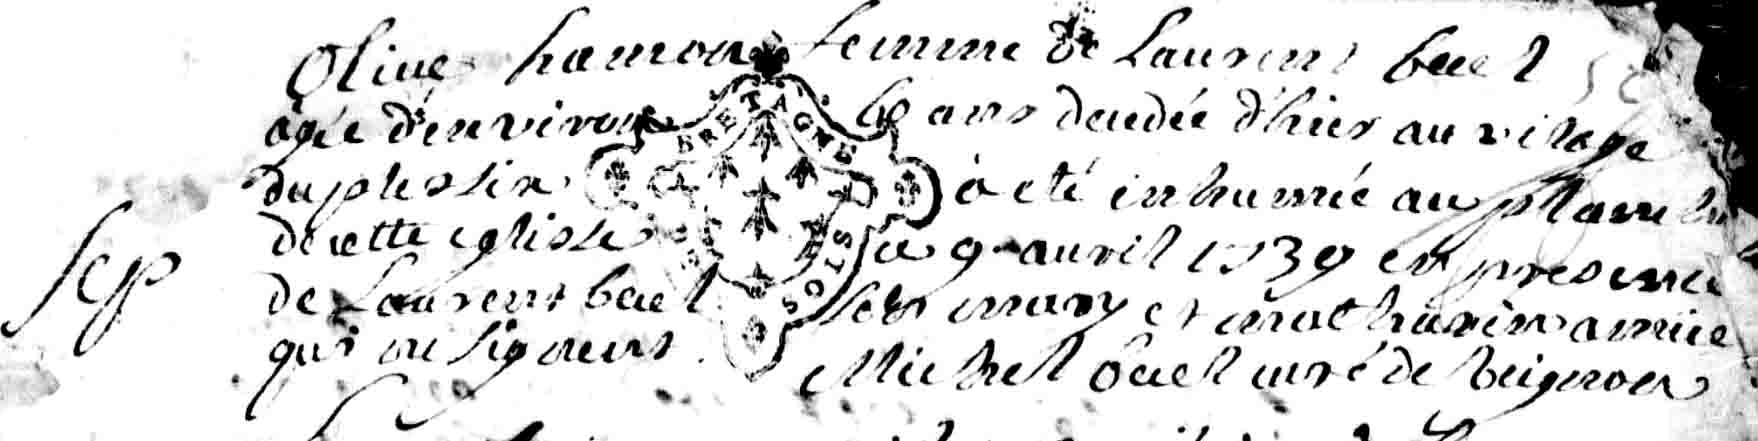 Olive hamon femme de Laurens bece l
agée denviron 60 ans decedée d'hier au vilage
du plessix a eté inhumée au
de cette eglisse ce 9 auril 1739 en presence
Sep
de Laurens becel son mary et mathurin amice
qui ne signent Michel becel curé de beignon
BRETAGNE